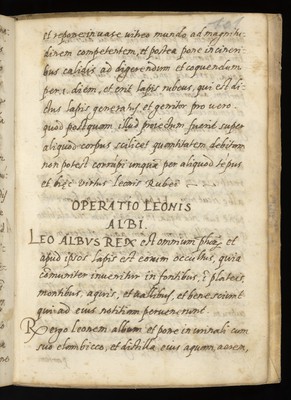 et repone in uase vitreo mundo ad magnitu
dinem competentem, et postea pone in cineri
bus calidis ad digerendum et coquendum
per 1. diem, et erit lapis rubeus, qui est di
ctus lapis generatus et genitor pro uero
quod postquam illud proiectum fuerit super
aliquod corpus scilicet quantitatem debitam
non potest corrumpi unquam per aliquod tempus
et haec virtus leonis Rubei
OPERATIO LEONIS
ALBI.
LEO ALBVS REX est omnium et
apud ipsos lapis est eorum occultus, quia
comuniter inuenitur in fontibus, i plateis,
montibus, aquis, et uallibus, et bene sciunt
qui ad eius notitiam peruenerunt
ergo leonem album et pone in urinali cum
suo elembicco, et distilla eius aquam, aerem,